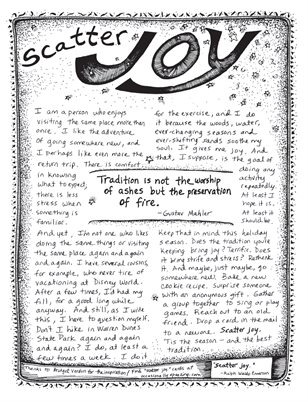 scatter
JOY
I am a person who enjoys
visiting the same place more than
once. I like the adventure
of going somewhere new, and
I perhaps like even more the
return trip. There is comfort
in knowing
what to expect,
there is less
stress when
something is
familiar.
And yet, I'm not one who likes
doing the same things or visiting
the same place again and again
and again. I have several cousins,
for example, who never tire of
vacationing at Disney World.
After a few times, I'd had my
fill, for a good long while
anyway. And still, as I write
this, I have to question myself.
Don't I hike in Warren Dunes
State Park again and again
and again? I do, at least a
few times a week. I do it
for the exercise, and I do
it because the woods, water,
ever-changing seasons and
ever-shifting sands soothe my
soul. It gives me joy. And
that, I suppose, is the goal of
doing any
activity
repeatedly.
At least I
hope it is.
At least it
should be.
Tradition is not the worship
of ashes but the preservation
of fire.
-Gustav Mahler
Keep that in mind this holiday
season. Does the tradition you're
keeping bring joy? Terrific. Does
it bring strife and stress? Rethink
it. And maybe, just maybe, go
somewhere new! Bake a new
cookie recipe. Surprise someone
with an anonymous gift. Gather
a group together to sing or play
games. Reach out to an old
friend. Drop a card in the mail
to a neworea. Scatter joy.
'Tis the season - and the best
tradition.
Thanks to Bridget
"Scatter joy."
-Ralph Waldo Emerson